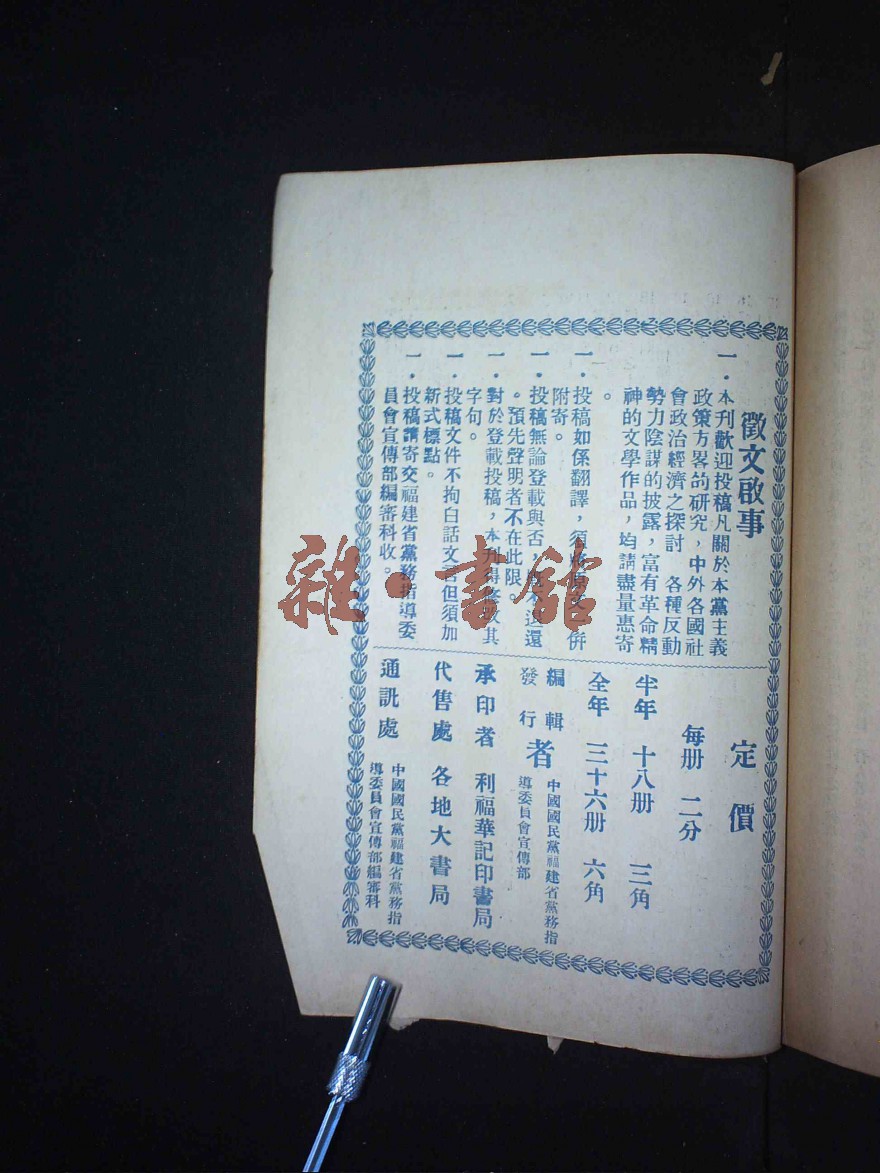 徵文啟事
一．本刊歡迎投稿凡關於本黨主義
政策方畧的研究，中外各國社
會政治經濟之探討 各種反動
勢力陰謀的披露，富有革命精
神的文學作品，均請盡量惠寄
。
一．投稿如係翻譯，須將原文一併
附寄。
一．投稿無論登載與否，概不退還
。預先聲明者不在此限。
一．對於登載投稿，本刊得修改其
字句。
一．投稿文件不拘白話文言但須加
新式標點。
一．投稿請寄交福建省黨務指導委
員會宣傳部編審科收。
定價
每册 二分
半年 十八册 三角
全年 三十六册 六角
編輯
發行
者
中國國民黨福建省黨務指
導委員會宣傳部
承印者 利福華記印書局
代售處 各地大書局
通訊處
中國國民黨福建省黨務指
導委員會宣傳部編審科
雜·書館